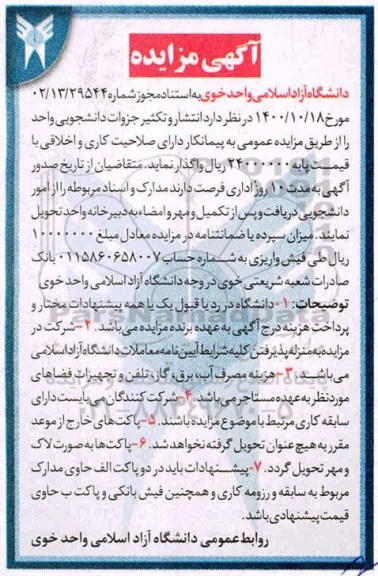 آگهی مزایده
دانشگاه آزاد اسلامی واحد خوی به استناد مجوز شماره ۰۲/۱۳/۲۹۵۴۴
مورخ ۱۴۰۰/۱۰/۱۸ در نظر دارد انتشار و تکثیر جزوات دانشجویی واحد
را از طریق مزایده عمومی به پیمانکار دارای صلاحیت کاری و اخلاقی با
قیمت پایه ۲۴۰۰۰۰۰۰ ریال واگذار نماید. متقاضیان از تاریخ صدور
آگهی به مدت ۱۰ روز اداری فرصت دارند مدارک و اسناد مربوطه را از امور
دانشجویی دریافت و پس از تکمیل و مهر و امضاء به دبیرخانه واحد تحویل
نمایند. میزان سپرده یا ضمانتنامه در مزایده معادل مبلغ ۱۰۰۰۰۰۰۰
ریال طی فیش واریزی به شماره حساب ۰۱۱۵۸۶۰۶۵۸۰۰۷ بانک
صادرات شعبه شریعتی خوی در وجه دانشگاه آزاد اسلامی واحد خوی
توضیحات: ۱- دانشگاه در رد یا قبول یک یا همه پیشنهادات مختار و
پرداخت هزینه درج آگهی به عهده برنده مزایده می‌باشد. ۲- شرکت در
مزایده به منزله پذیرفتن کلیه شرایط آیین نامه معاملات دانشگاه آزاد اسلامی
می باشد. ۳- هزینه مصرف آب، برق، گاز، تلفن و تجهیزات فضاهای
مورد نظر به عهده مستاجر می باشد. ۴- شرکت کنندگان می بایست دارای
سابقه کاری مرتبط با موضوع مزایده باشند. ۵- پاکت‌های خارج از موعد
مقرر به هیچ عنوان تحویل گرفته نخواهد شد. ۶- پاکت‌ها به صورت لاک
و مهر تحویل گردد. ۷- پیشنهادات باید در دو پاکت الف حاوی مدارک
مربوط به سابقه و رزومه کاری و همچنین فیش بانکی و پاکت ب حاوی
قیمت پیشنهادی باشد.
روابط عمومی دانشگاه آزاد اسلامی واحد خوی
ParsNamadData